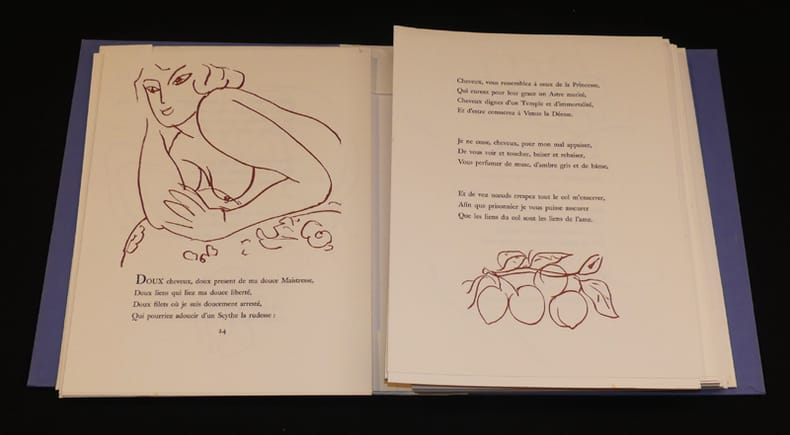 Doux cheveux, doux present de ma douce Maistresse,
Doux liens qui liez ma douce liberté,
Doux filets où je suis doucement arresté,
Qui pourriez adoucir d'un Scythe la rudesse :
24
Cheveux, vous ressemblez à ceux de la Princesse,
Qui eurent pour leur grace un Astre merité,
Cheveux dignes d'un Temple et d'immortalité,
Et d'estre consacrez à Venus la Déesse.
Je ne cesse, cheveux, pour mon mal appaiser,
De vous voir et toucher, baiser et rebaiser,
Vous perfumer de musc, d'ambre gris et de bâme,
Et de voz nœuds crespez tout le col m'enserrer,
Afin que prisonnier je vous puisse asseurer
Que les liens du col sont les liens de l'ame.